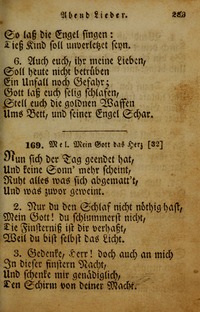 Abend Lieder.
So laß die Engel singen:
Dieß Kind soll unverletzet seyn.
6. Auch euch, ihr meine Lieben,
Soll heute nicht betrüben
Ein Unfall noch Gefahr;
Gott laß euch selig schlafen,
Stell euch die goldnen Waffen
Ums Bett, und seiner Engel Schar.
169. Mel. Mein Gott das Herz [32]
Nun sich der Tag geendet hat,
Und keine Sonn' mehr scheint,
Ruht alles was sich abgematt't,
Und was zuvor geweint.
2. Nur du den Schlaf nicht nöthig hast,
Mein Gott! du schlummerst nicht,
Die Finsterniß ist dir verhaßt,
Weil du bist selbst das Licht.
3. Gedenke, Herr! doch auch an mich
In dieser finstern Nacht,
Und schenke mir genädiglich,
Den Schirm von deiner Macht.